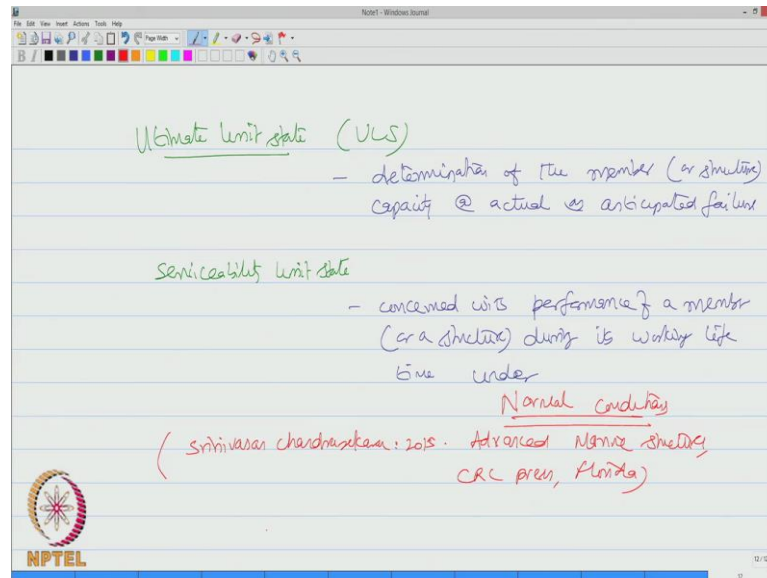 Note1 - Windows Journal
File Edit View Insert Actions Tools Help
Page Width
B I
Ultimate limit state (ULS)
- determination of the member (or structure)
capacity @ actual or anticipated failure
Serviceability limit state
- concerned with performance of a member
(or a structure) during its working life
time under
Normal conditions
(Srinivasan Chandrasekaran: 2015. Advanced Marine Structures,
CRC press, Florida)
NPTEL